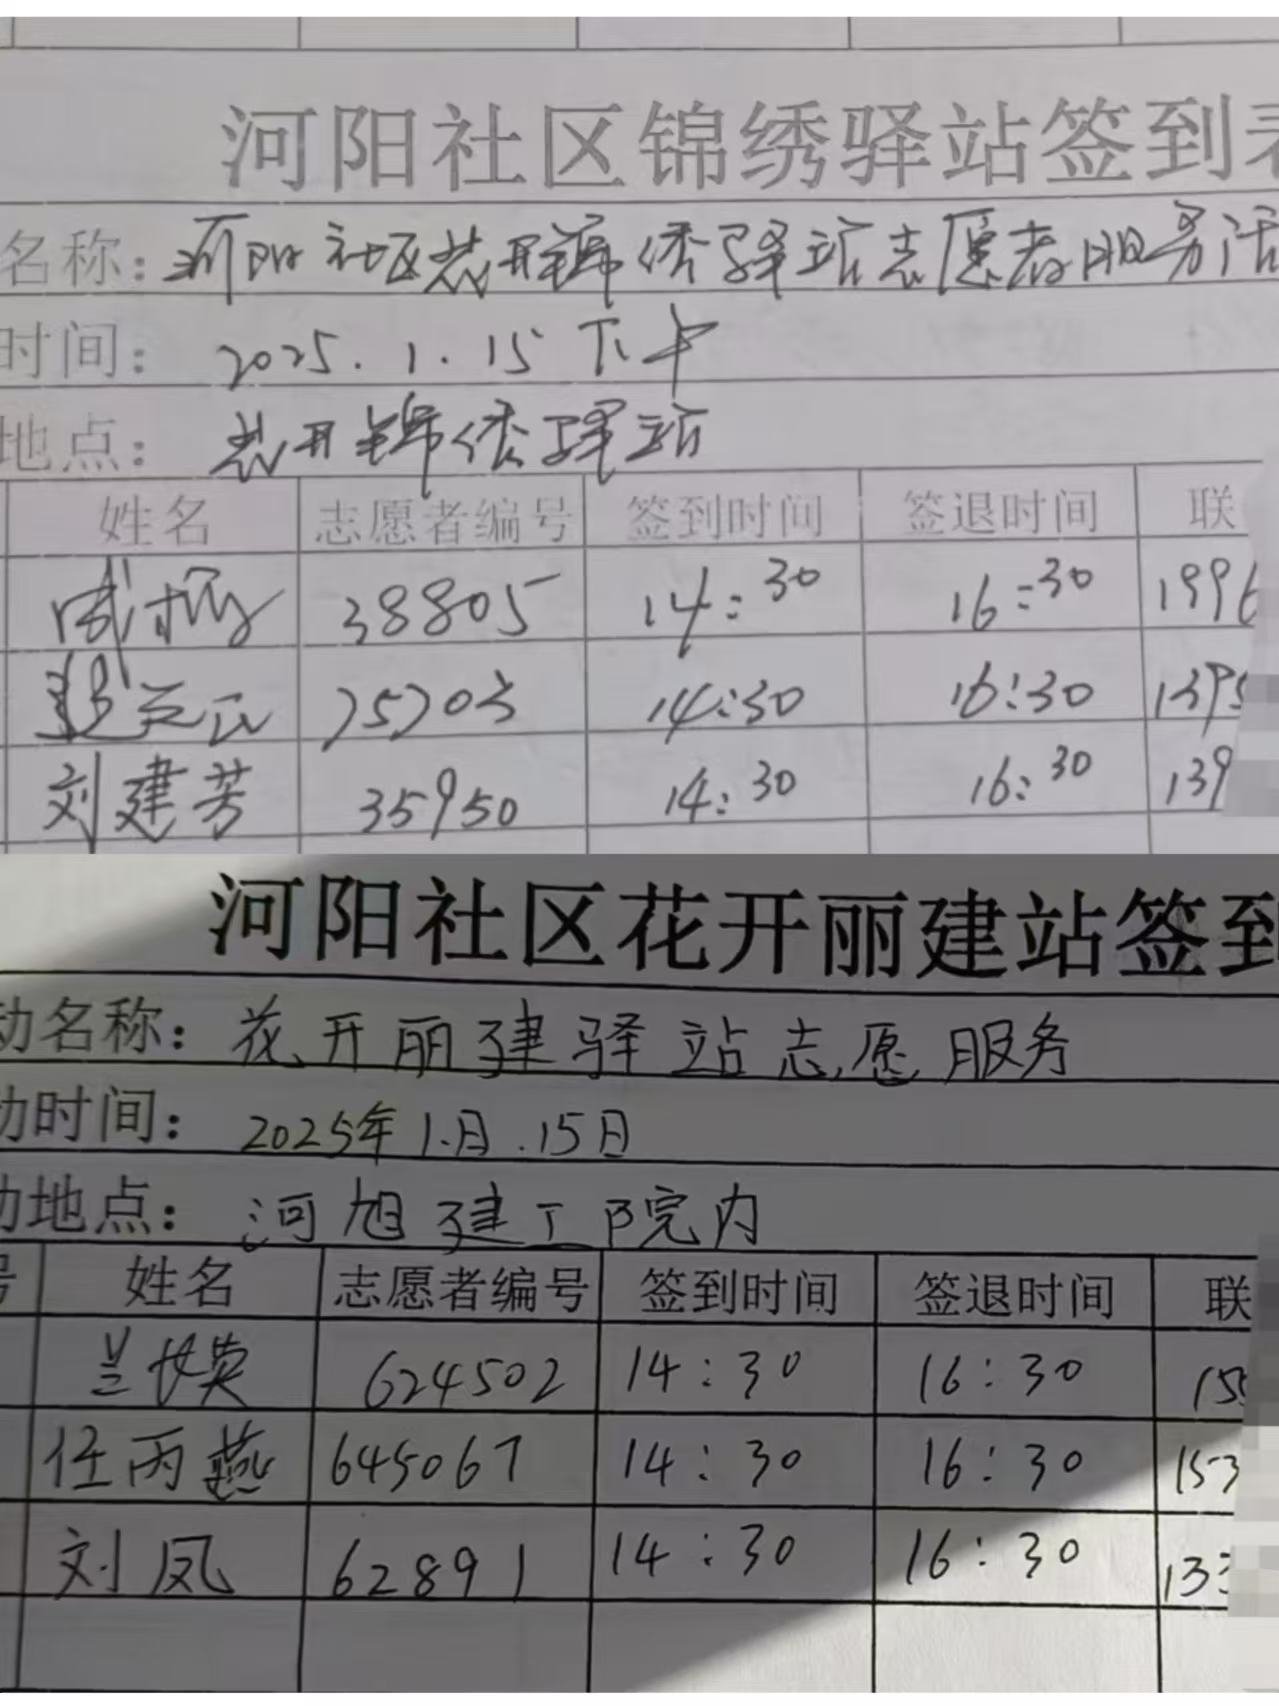 河阳社区锦绣驿站签到表
名称：河阳社区花开锦绣驿站志愿者服务活
时间：2025.1.15下午
地点：花开锦绣驿站
姓名 志愿者编号 签到时间 签退时间 联
38805 14:30 16:30 1996
75703 14:30 16:30 1395
刘建芳 35950 14:30 16:30 139
河阳社区花开丽建站签到
动名称：花开丽建驿站志愿服务
动时间：2025年1月.15日
动地点：河旭建工院内
号 姓名 志愿者编号 签到时间 签退时间 联
624502 14:30 16:30 155
任丙燕 645067 14:30 16:30 153
刘凤 62891 14:30 16:30 133